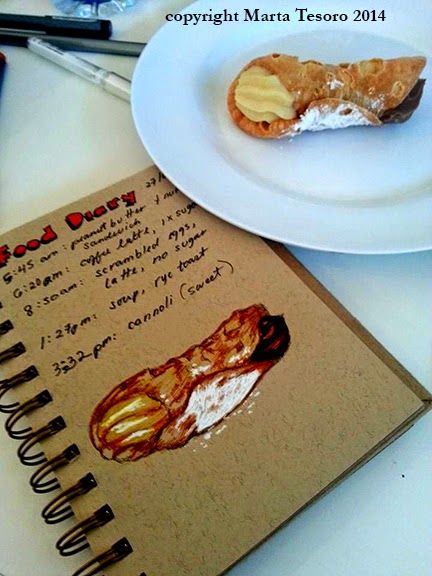 copyright Marta Tesoro 2014
Food Diary
5:45 am: peanut butter
sandwich
6:20am: coffee latte, 1x sugar
8:50am: scrambled eggs,
latte, no sugar
1:27pm: soup, rye toast
3:32 pm: cannoli (sweet)